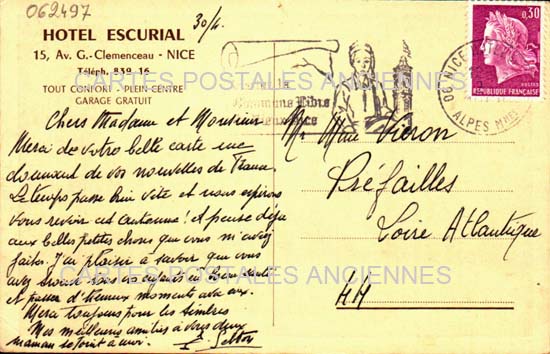 062497
30/4.
HOTEL ESCURIAL
15, Av. G.-Clemenceau - NICE
Téléph. 839-16
TOUT CONFORT - PLEIN CENTRE
GARAGE GRATUIT
0,30
POSTES
REPUBLIQUE FRANÇAISE
06 NICE
ALPES MMES
Commune Libre
CARTES POSTALES ANCIENNES
Chers Madame et Monsieur
Merci de votre belle carte me
donnant de vos nouvelles de France
Le temps passe bien vite et nous espérons
vous revoir cet automne! A pense déjà
aux belles petites choses que vous m'avez
faites. J'ai plaisir à savoir que vous
avez
et passer d'heureux moments avec eux.
Merci toujours pour les timbres
Mes meilleures amitiés à vous deux
maman se joint à moi.
Mr Mme Vieron
Préfailles
Loire Atlantique
44
CARTES POSTALES ANCIENNES